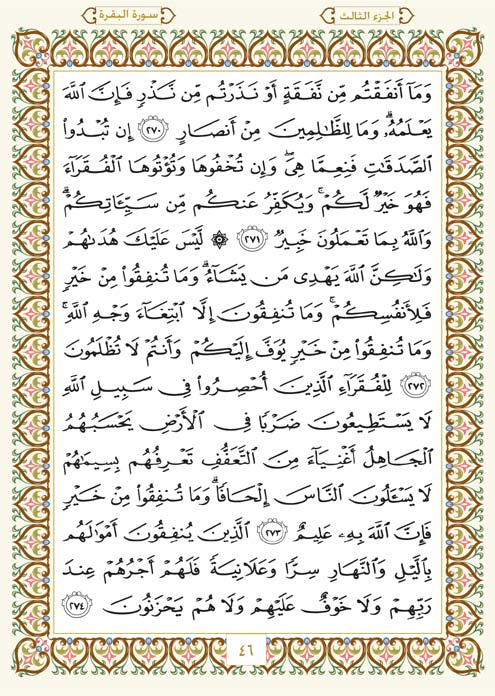 الجزء الثالث
سورة البقرة
وَمَآ أَنفَقْتُم مِّن نَّفَقَةٍ أَوْ نَذَرْتُم مِّن نَّذْرٍ فَإِنَّ ٱللَّهَ
يَعْلَمُهُۥۗ وَمَا لِلظَّٰلِمِينَ مِنْ أَنصَارٍ ٢٧٠ إِن تُبْدُوا۟
ٱلصَّدَقَٰتِ فَنِعِمَّا هِىَۖ وَإِن تُخْفُوهَا وَتُؤْتُوهَا ٱلْفُقَرَآءَ
فَهُوَ خَيْرٌ لَّكُمْۚ وَيُكَفِّرُ عَنكُم مِّن سَيِّـَٔاتِكُمْۗ
وَٱللَّهُ بِمَا تَعْمَلُونَ خَبِيرٌ ٢٧١ ۞ لَّيْسَ عَلَيْكَ هُدَىٰهُمْ
وَلَٰكِنَّ ٱللَّهَ يَهْدِى مَن يَشَآءُۗ وَمَا تُنفِقُوا۟ مِنْ خَيْرٍ
فَلِأَنفُسِكُمْۚ وَمَا تُنفِقُونَ إِلَّا ٱبْتِغَآءَ وَجْهِ ٱللَّهِۚ
وَمَا تُنفِقُوا۟ مِنْ خَيْرٍ يُوَفَّ إِلَيْكُمْ وَأَنتُمْ لَا تُظْلَمُونَ
٢٧٢ لِلْفُقَرَآءِ ٱلَّذِينَ أُحْصِرُوا۟ فِى سَبِيلِ ٱللَّهِ
لَا يَسْتَطِيعُونَ ضَرْبًا فِى ٱلْأَرْضِ يَحْسَبُهُمُ
ٱلْجَاهِلُ أَغْنِيَآءَ مِنَ ٱلتَّعَفُّفِ تَعْرِفُهُم بِسِيمَٰهُمْ
لَا يَسْـَٔلُونَ ٱلنَّاسَ إِلْحَافًاۗ وَمَا تُنفِقُوا۟ مِنْ خَيْرٍ
فَإِنَّ ٱللَّهَ بِهِۦ عَلِيمٌ ٢٧٣ ٱلَّذِينَ يُنفِقُونَ أَمْوَٰلَهُم
بِٱلَّيْلِ وَٱلنَّهَارِ سِرًّا وَعَلَانِيَةً فَلَهُمْ أَجْرُهُمْ عِندَ
رَبِّهِمْ وَلَا خَوْفٌ عَلَيْهِمْ وَلَا هُمْ يَحْزَنُونَ ٢٧٤
٤٦